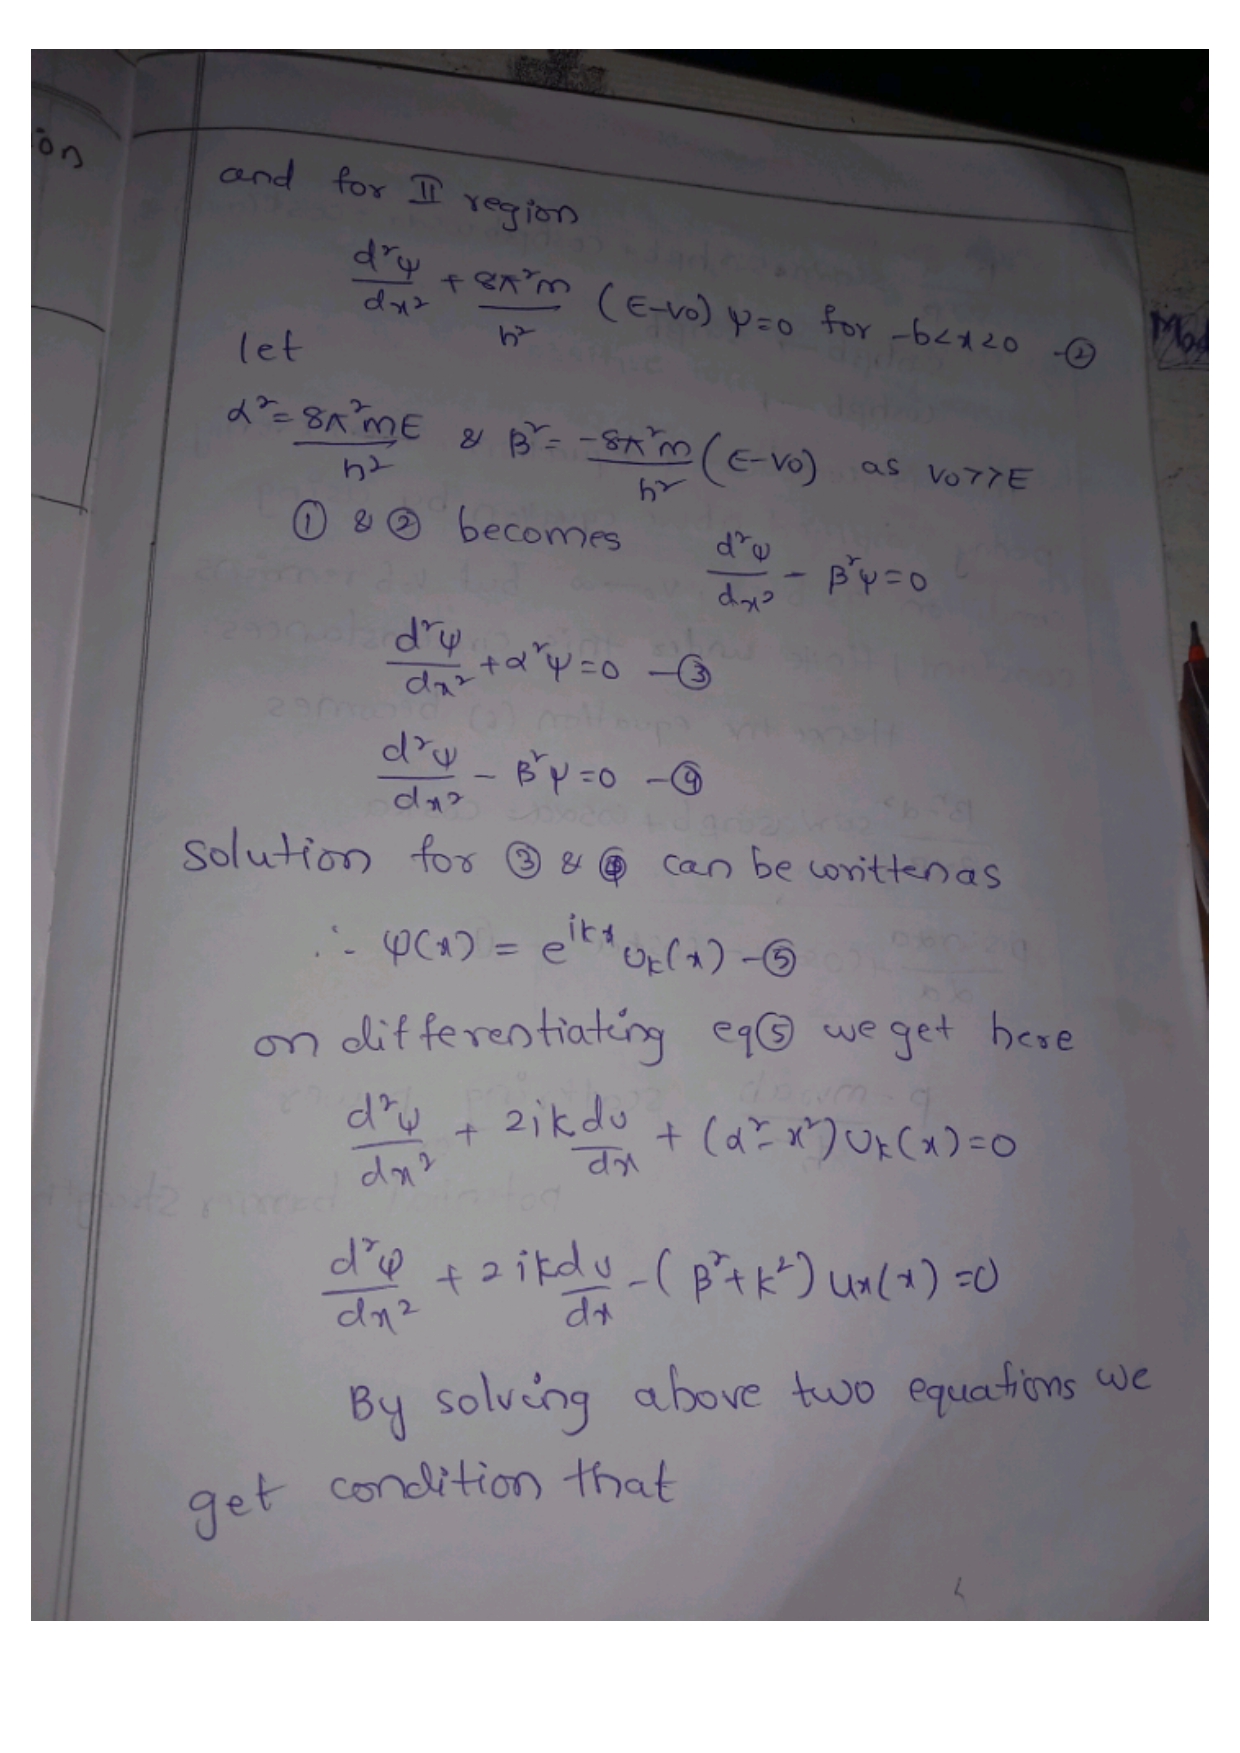 ion
and for II region
d²ψ/dx² + 8π²m/h² (E-V0) ψ=0 for -b<x<0 -②
let
α² = 8π²mE/h² & β² = -8π²m/h² (E-V0) as V0>>E
① & ② becomes d²ψ/dx² - β²ψ=0
d²ψ/dx² + α²ψ=0 -③
d²ψ/dx² - β²ψ=0 -④
solution for ③ & ④ can be written as
∴ ψ(x) = e^{ikx} U_k(x) -⑤
on differentiating eq⑤ we get here
d²ψ/dx² + 2ik du/dx + (α²-x²) U_k(x)=0
d²ψ/dx² + 2ik du/dx - (β²+k²) u_x(x) =0
By solving above two equations we
get condition that